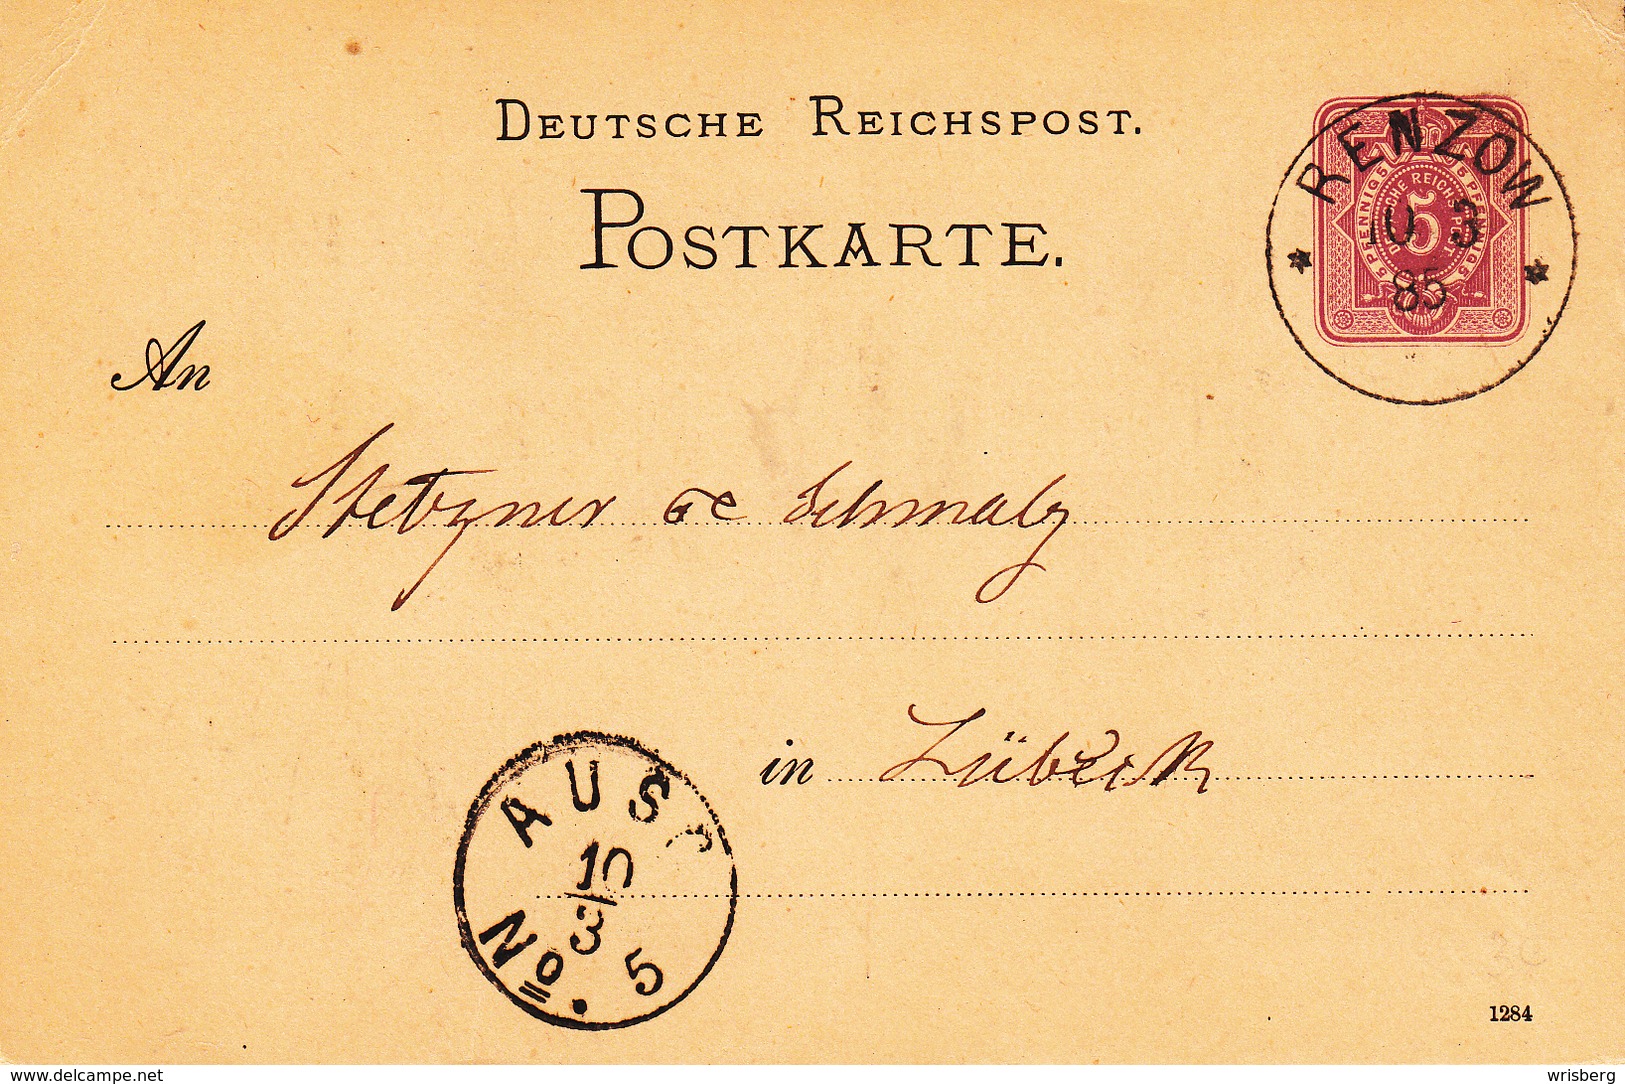 DEUTSCHE REICHSPOST.
POSTKARTE.
RENZOW
10 3
85
5 PFENNIG 5
5 PFENNIG 5
DEUTSCHE REICHS-POST
5
An
Stetzner & Schmalz
in Lübeck
AUSG
10
3
No. 5
1284
www.delcampe.net
wrisberg